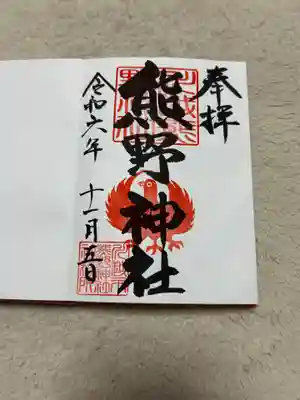 奉拝
熊野神社
令和六年 十一月五日